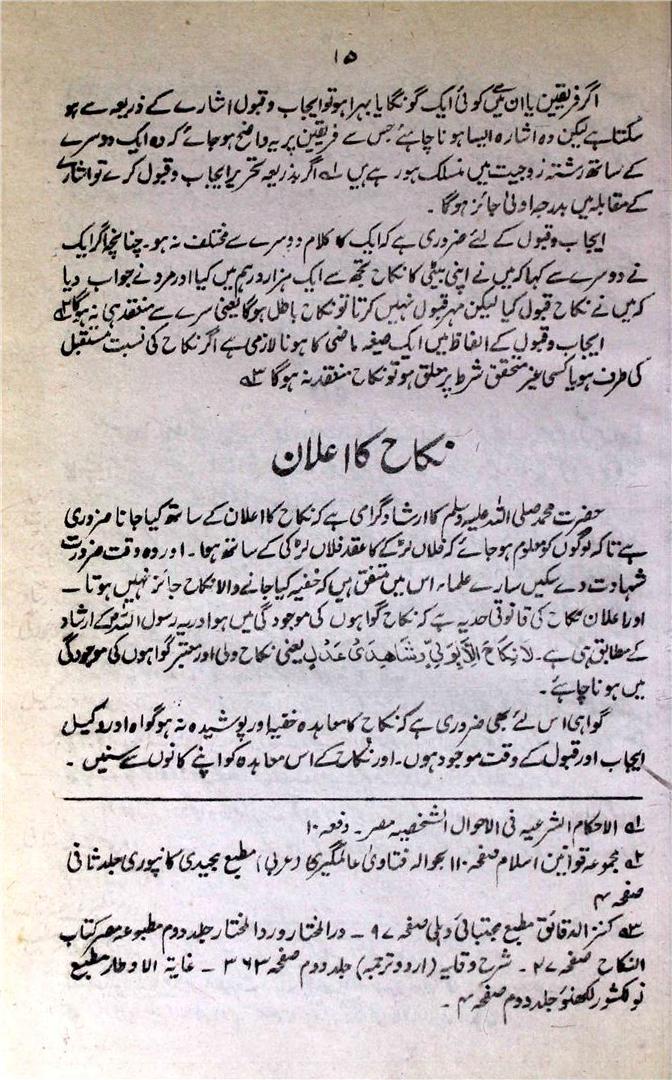 ۱۵
اگر فریقین یا ان میں کوئی ایک گونگا یا بہرا ہو تو ایجاب و قبول اشارے کے ذریعہ سے ہو
سکتا ہے لیکن وہ اشارہ ایسا ہونا چاہئے جس سے فریقین پر یہ واضح ہو جائے کہ وہ ایک دوسرے
کے ساتھ رشتہ زوجیت میں منسلک ہو رہے ہیں ۱ھ اگر بذریعہ تحریر ایجاب و قبول کرے تو اشارے
کے مقابلہ میں بدرجہ اولیٰ جائز ہوگا ۔
ایجاب و قبول کے لئے ضروری ہے کہ ایک کا کلام دوسرے سے مختلف نہ ہو۔ چنانچہ اگر ایک
نے دوسرے سے کہا کہ میں نے اپنی بیٹی کا نکاح تجھ سے ایک ہزار درہم میں کیا اور مرد نے جواب دیا
کہ میں نے نکاح قبول کیا لیکن مہر قبول نہیں کرتا تو نکاح باطل ہوگا یعنی سرے سے منعقد ہی نہ ہوگا ۲ھ
ایجاب و قبول کے الفاظ میں ایک صیغہ ماضی کا ہونا لازمی ہے اگر نکاح کی نسبت مستقبل
کی طرف ہو یا کسی غیر متحقق شرط پر معلق ہو تو نکاح منعقد نہ ہوگا ۳ھ
نکاح کا اعلان
حضرت محمد صلی اللہ علیہ وسلم کا ارشاد گرامی ہے کہ نکاح کا اعلان کے ساتھ کیا جانا ضروری
ہے تاکہ لوگوں کو معلوم ہو جائے کہ فلاں لڑکے کا عقد فلاں لڑکی کے ساتھ ہوا۔ اور وہ وقت ضرورت
شہادت دے سکیں سارے علماء اس میں متفق ہیں کہ خفیہ کیا جانے والا نکاح جائز نہیں ہوتا ۔
اور اعلان نکاح کی قانونی حد یہ ہے کہ نکاح گواہوں کی موجودگی میں ہو اور یہ رسول اللہ کے ارشاد
کے مطابق ہی ہے ۔ لَا نِکَاحَ اِلَّا بِوَلِیٍّ وَشَاھِدَیْ عَدْلٍ یعنی نکاح ولی اور معتبر گواہوں کی موجودگی
میں ہونا چاہئے ۔
گواہی اس لئے بھی ضروری ہے کہ نکاح کا معاہدہ خفیہ اور پوشیدہ نہ ہو گواہ اور وکیل
ایجاب اور قبول کے وقت موجود ہوں ۔ اور نکاح کے اس معاہدہ کو اپنے کانوں سے سنیں ۔
۱ھ الاحکام الشرعیہ فی الاحوال الشخصیہ مصر ۔ دفعہ ۱۰
۲ھ مجموعہ قوانین اسلام صفحہ ۱۱۰ بحوالہ فتاویٰ عالمگیری (عربی) مطبع مجیدی کانپوری جلد ثانی
صفحہ ۴
۳ھ کنز الدقائق مطبع مجتبائی دہلی صفحہ ۹۷ ۔ در المختار و رد المختار جلد دوم مطبوعہ مصر کتاب
النکاح صفحہ ۲۷ ۔ شرح وقایہ (اردو ترجمہ) جلد دوم صفحہ ۳۶۳ ۔ غایۃ الاوطار مطبع
نولکشور لکھنو جلد دوم صفحہ ۴ ۔